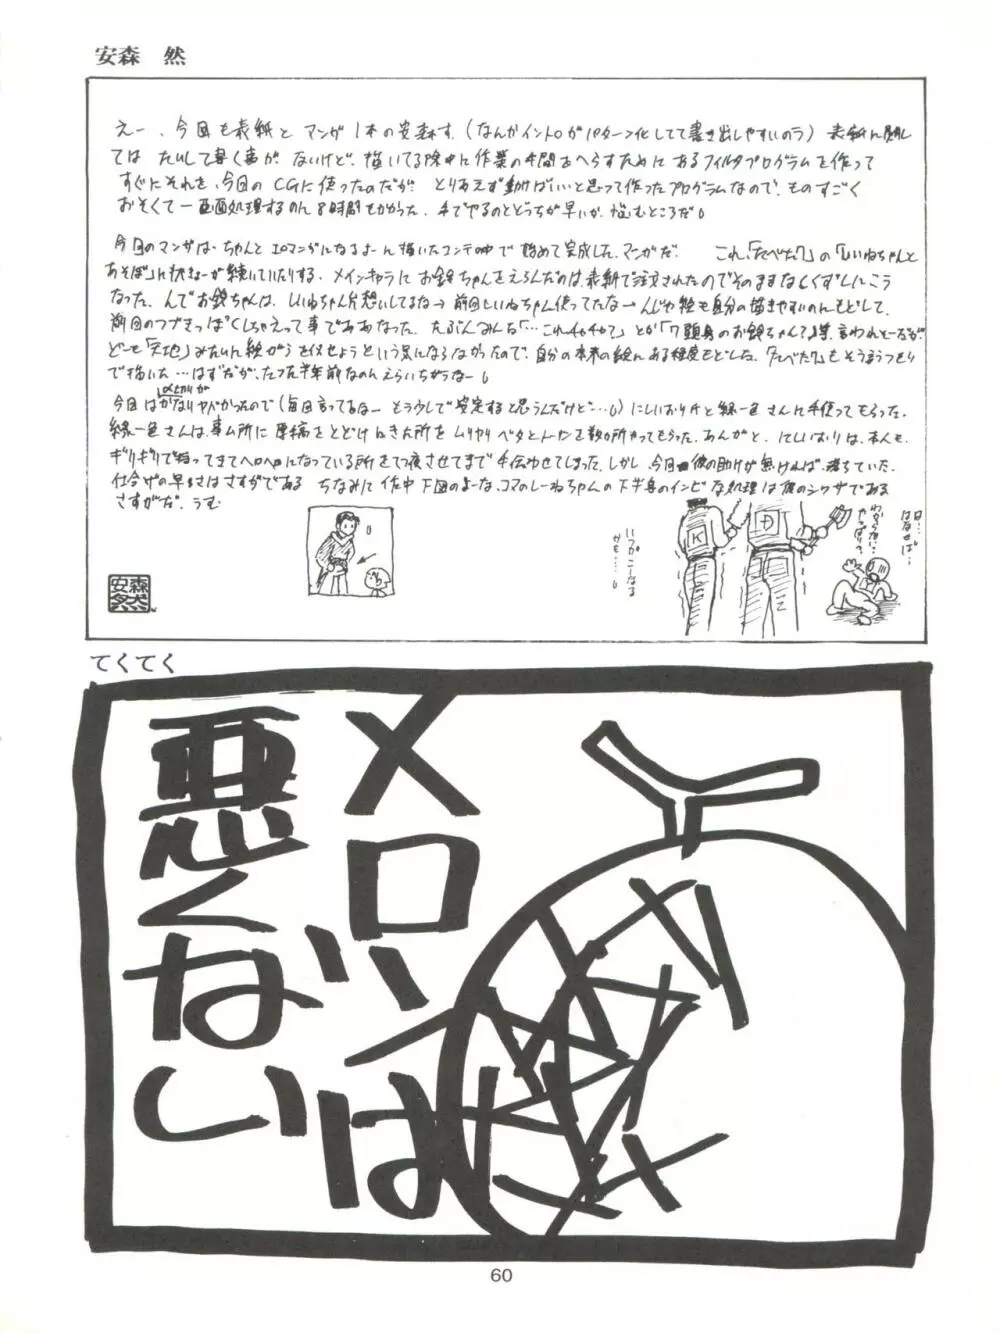 安森 然
えー、今回も表紙と マンガ1本の安森す。(なんかイントロがパターン化してて書き出しやすいのう) 表紙に関し
ては たいして書く事が ないけど、描いてる最中に作業の手間をへらすために あるフィルタプログラムを作って
すぐにそれを、今回の CGに使ったのだが とりあえず動けばいいと思って作ったプログラムなので、ものすごく
おそくて一画面処理するのん8時間もかかった。手でやるのとどっちが早いか 悩むところだ
今回のマンガは、ちゃんと エロマンガになるよーに描いたコンテの中で 始めて完成した、マンガだ。 これ、「たべた?」の「しいねちゃんと
あそぼ」に 続いていたりする。メインキャラに お鈴ちゃんをえらんだのは、表紙で注文されたのでそのままなしくずしにこう
なった。んでお鈴ちゃんは、しいねちゃん片想いしてるな→前回しいねちゃん使ってたな→んじゃ絵も自分の描きやすいのにもどして、
前回のつづきっぽくしちゃえって事でああなった。たぶんみんな「…これチャチャ?」とか「7頭身のお鈴ちゃんて」 言われそーだが、
どーも「天地」みたいに絵がらを似せようという気にならなかったので、自分の本来の絵に ある程度もどした。「たべた?」も そうゆうつもり
で描いた…はずだが、たった半年前なのん えらいちがうなー
〆切りが
今回はかなりヤバかったので(毎回言ってるなー もう少しで安定すると思うんだけど…) にしいおり氏と緑一色さんに手伝ってもらった。
緑一色さんは、事ム所に 原稿をとどけにきた所を ムリヤリ ベタとトーンを数ヵ所やってもらった。あんがと、にしいおりは、本人も、
ギリギリで持ってきてヘロヘロになっている所をてつ夜させてまで 手伝わせてしまった、しかし、今回彼の助けが無ければ、落ちていた。
仕上げの早さはさすがである ちなみに作中 下図のよーな、コマのしーねちゃんの下半身のインビな処理は彼のシワザである
さすがだ。うむ
いつかこーなる
かも……
K
D
わからない…
やっぱり?
安森
然
てくてく
メロンは
悪くない
60